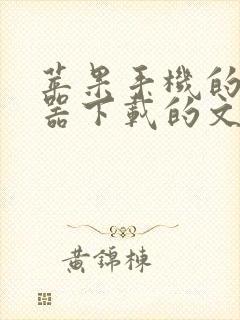 蘋果手機的
器下載的文
黃錦棟